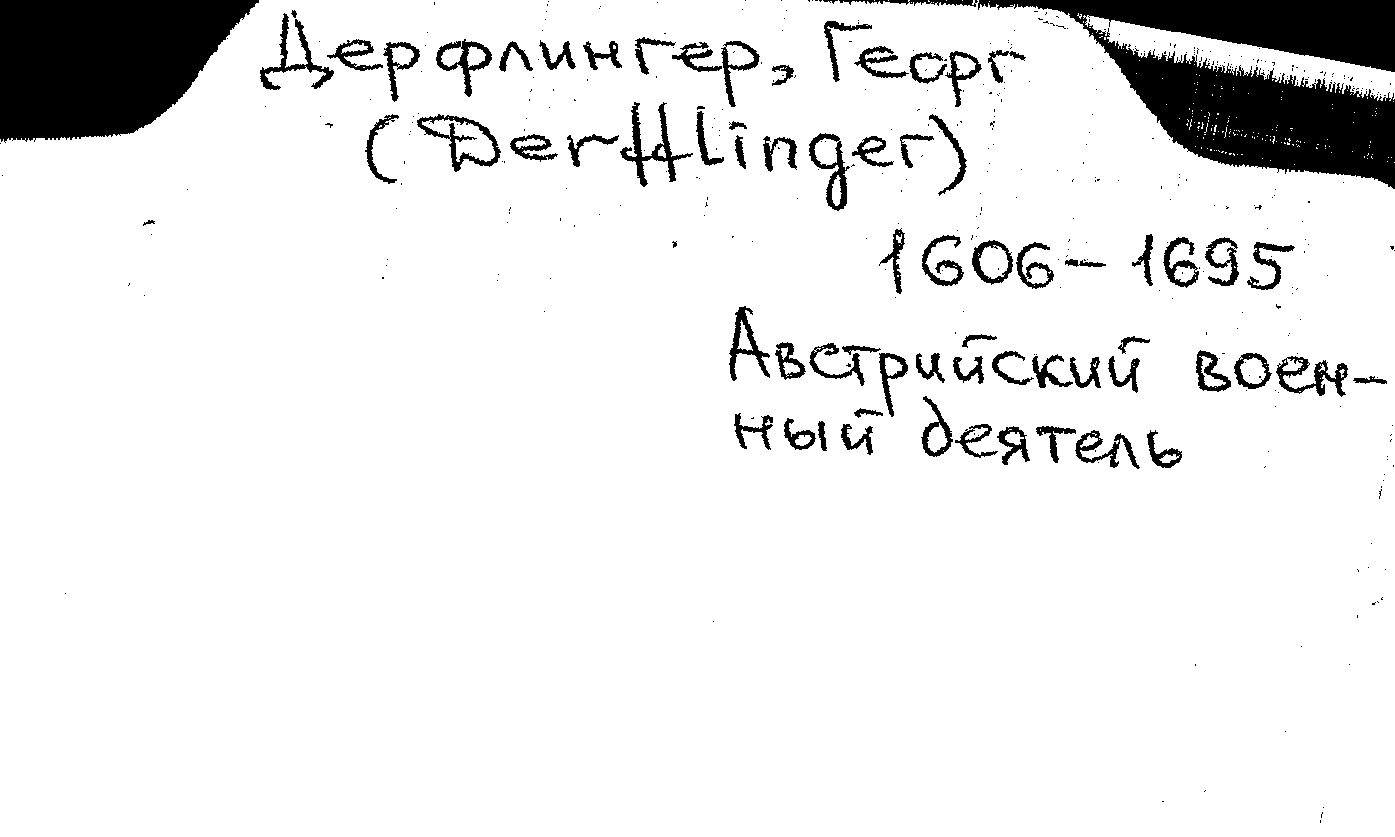 Дерфлингер, Георг
(Derfflinger)
1606–1695
Австрийский воен-
ный деятель